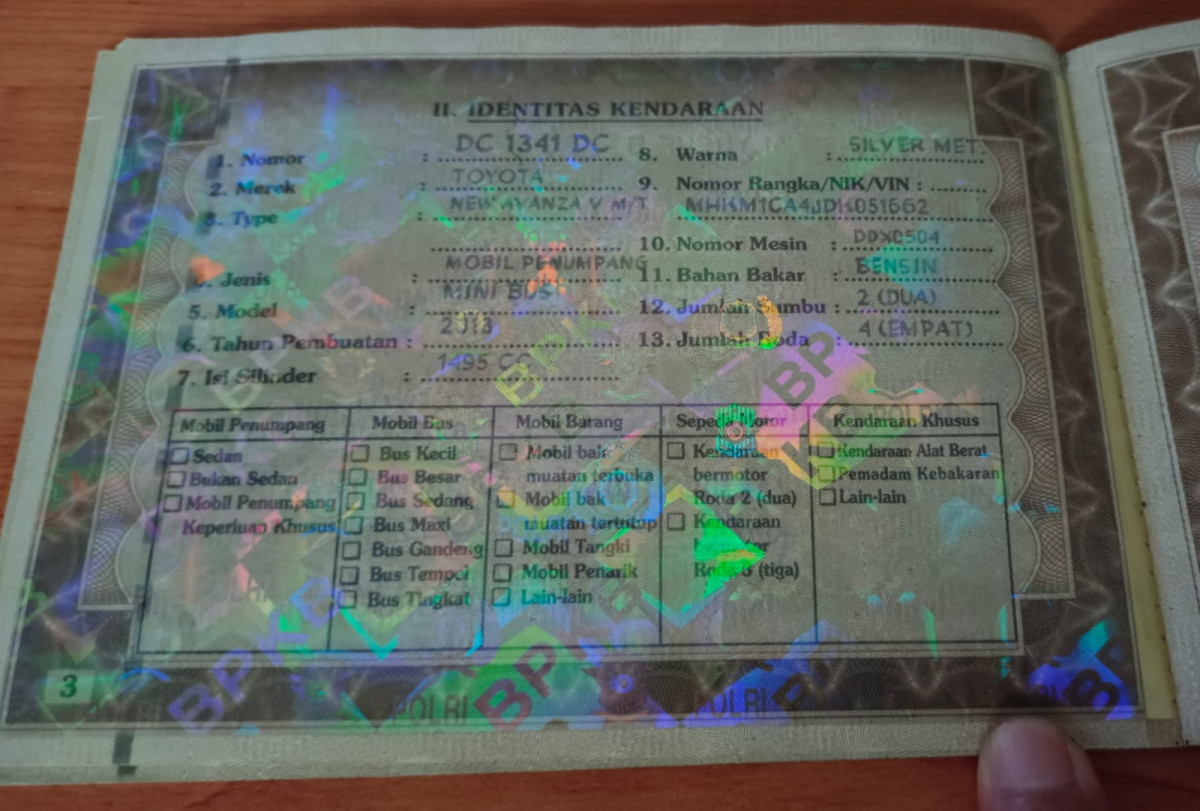 II. IDENTITAS KENDARAAN
1. Nomor : DC 1341 DC
2. Merek : TOYOTA
3. Type : NEW AVANZA V M/T
4. Jenis : MOBIL PENUMPANG
5. Model : MINI BUS
6. Tahun Pembuatan : 2013
7. Isi Silinder : 1495 CC
8. Warna : SILVER MET.
9. Nomor Rangka/NIK/VIN :
MHKM1CA4JDK051662
10. Nomor Mesin : DDX0504
11. Bahan Bakar : BENSIN
12. Jumlah Sumbu : 2 (DUA)
13. Jumlah Roda : 4 (EMPAT)
Mobil Penumpang
Sedan
Bukan Sedan
Mobil Penumpang
Keperluan Khusus
Mobil Bus
Bus Kecil
Bus Besar
Bus Sedang
Bus Maxi
Bus Gandeng
Bus Tempel
Bus Tingkat
Mobil Barang
Mobil bak
muatan terbuka
Mobil bak
muatan tertutup
Mobil Tangki
Mobil Penarik
Lain-lain
Sepeda Motor
Kendaraan
bermotor
Roda 2 (dua)
Kendaraan
bermotor
Roda 3 (tiga)
Kendaraan Khusus
Kendaraan Alat Berat
Pemadam Kebakaran
Lain-lain
3
BPKB
POLRI
BPKB
POLRI